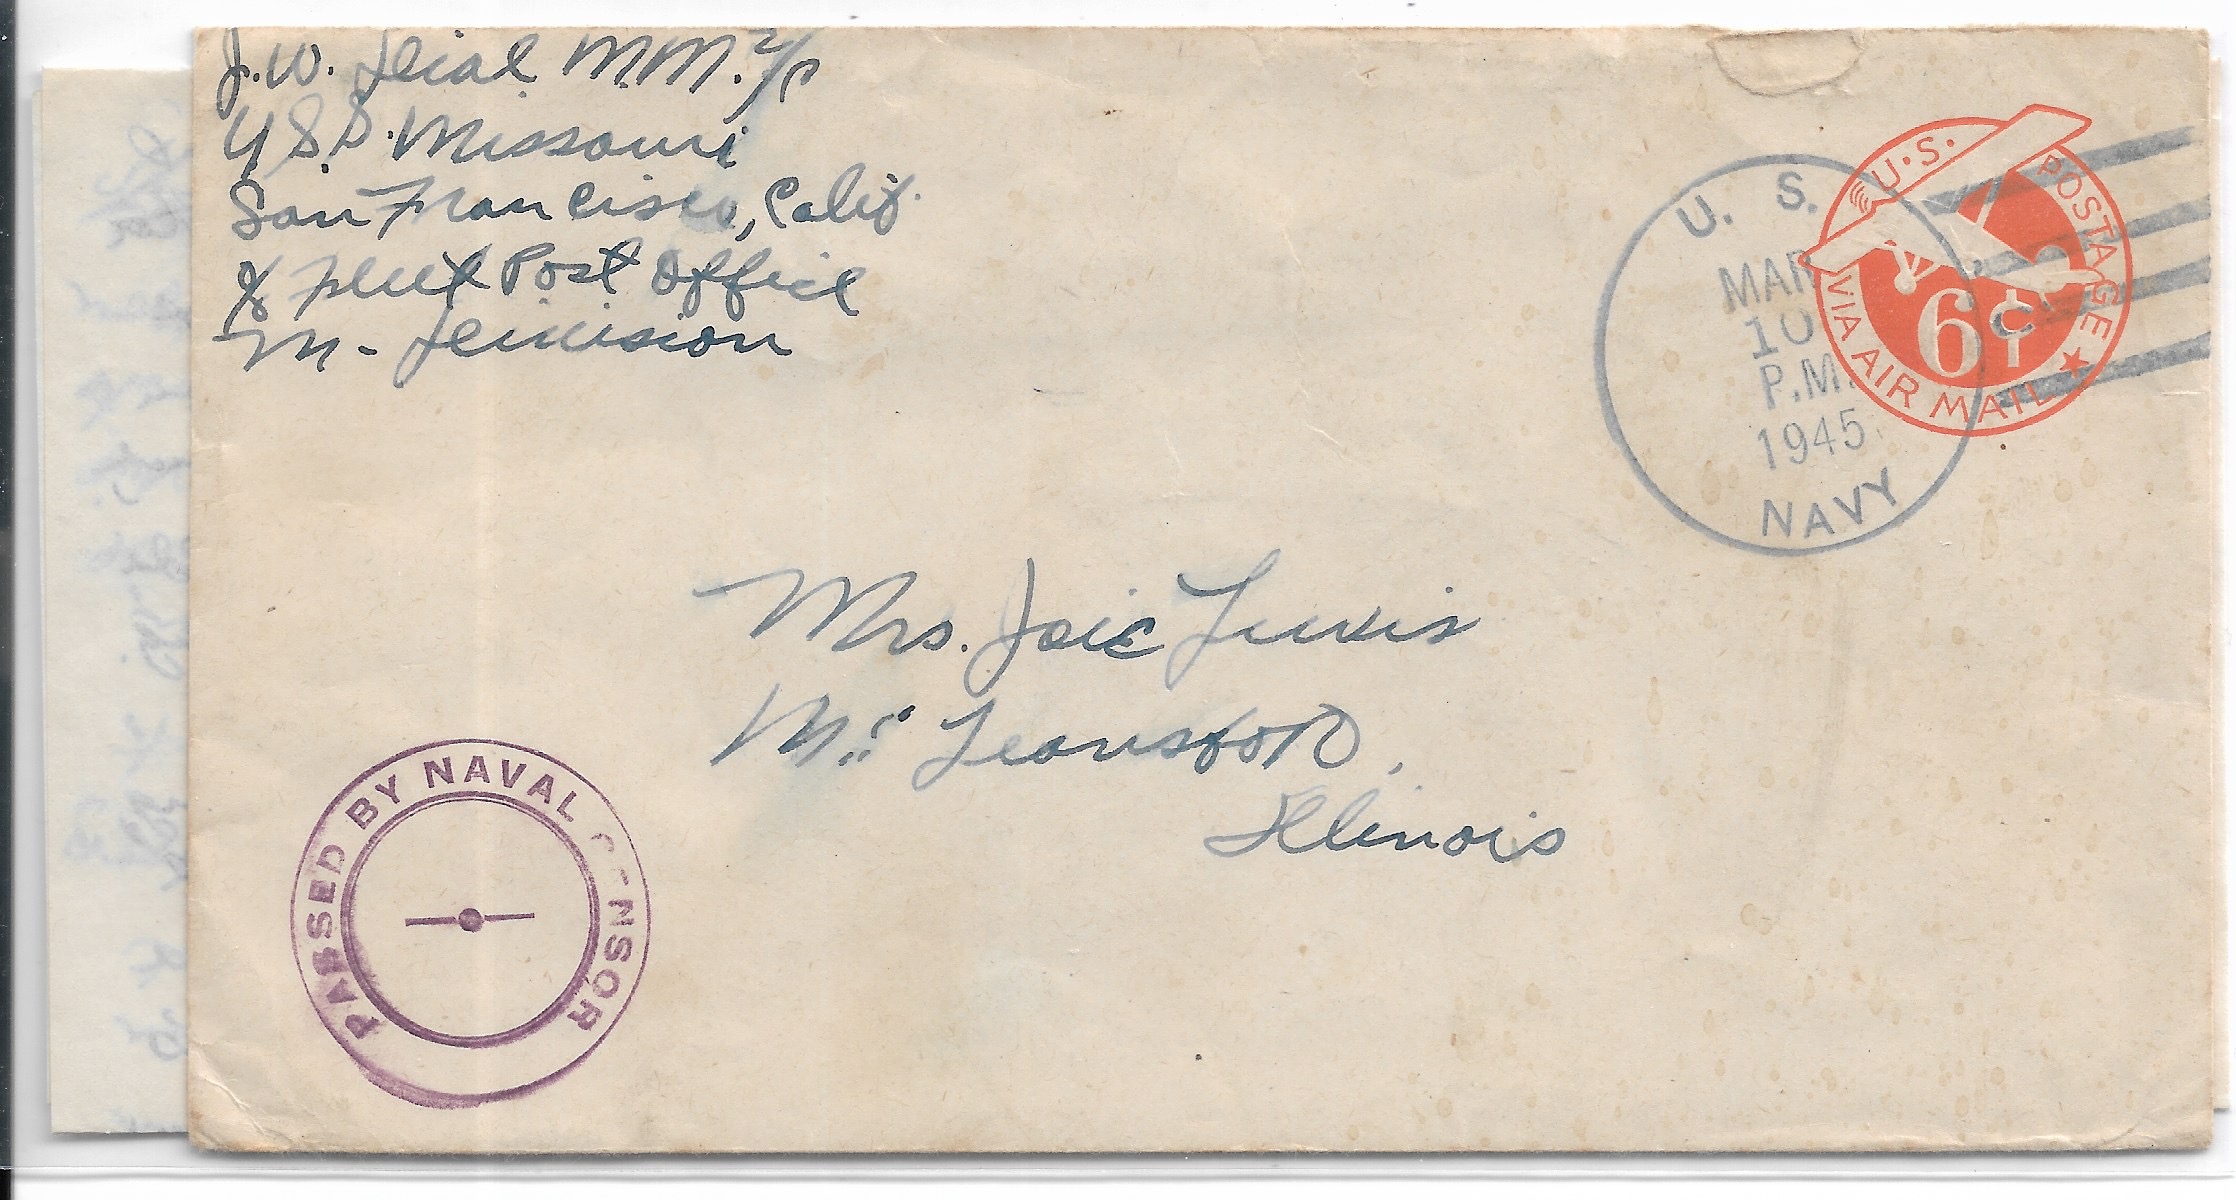 J.W. Deial M.M. 2/c
U.S.S. Missouri
San Francisco, Calif.
% Fleet Post Office
M- Division
U.S. POSTAGE
VIA AIR MAIL
6¢
U. S. NAVY
MAR
10
P.M.
1945
Mrs. Joie Lewis
Mc Leansboro,
Illinois
PASSED BY NAVAL CENSOR